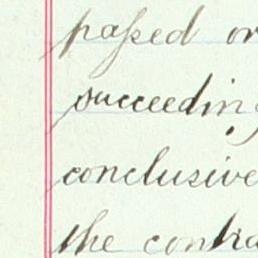 passed or
succeeding
conclusive
the contra